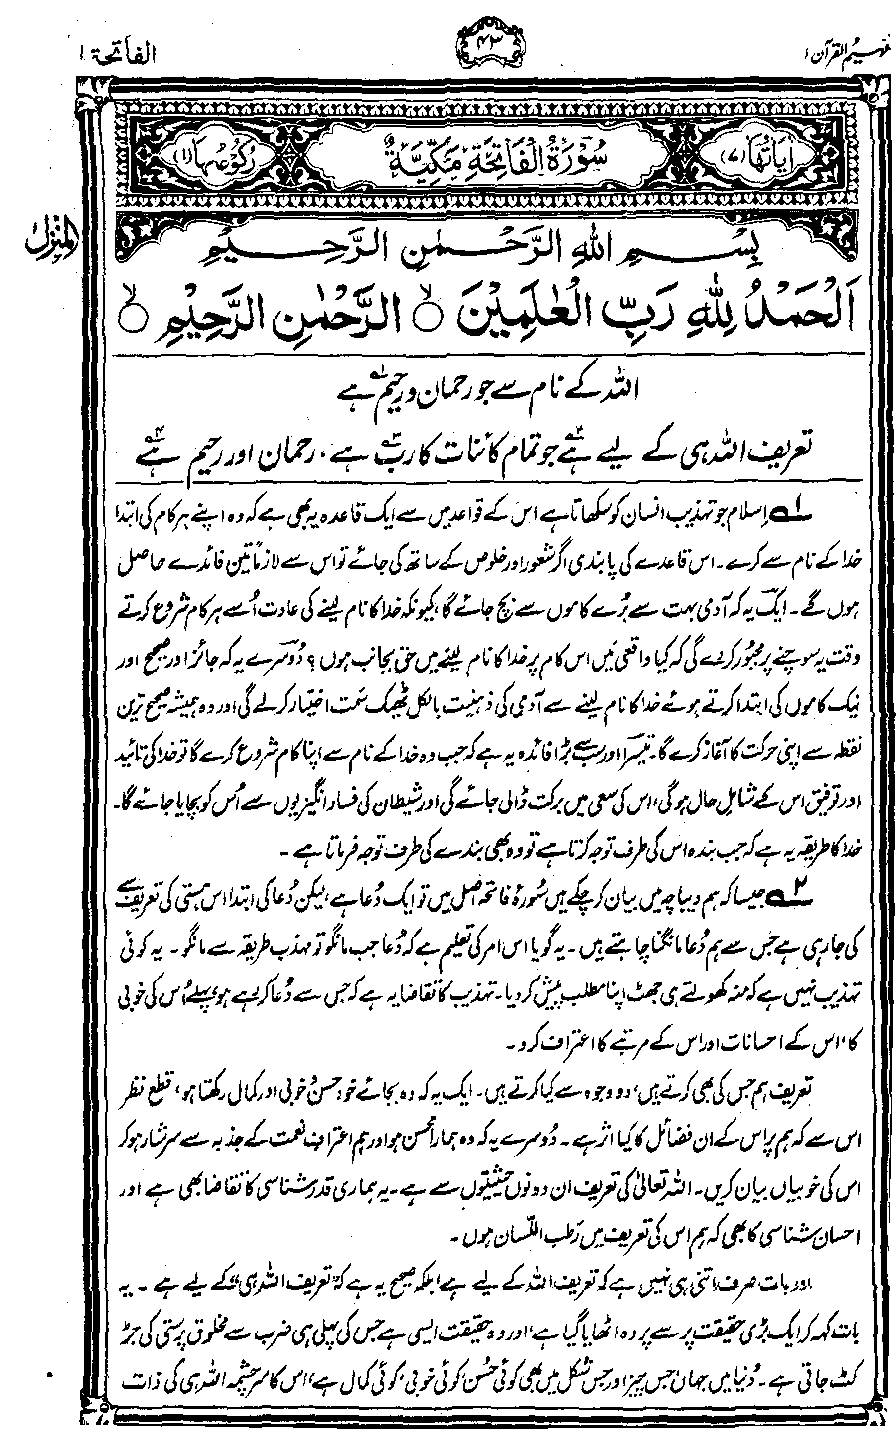 تفہیم القرآن ۱
۴۳
الفاتحۃ ۱
اٰیَاتُهَا (۷)
سُوْرَةُ الْفَاتِحَةِ مَكِّيَّةٌ
رُكُوْعُهَا (۱)
المنزل
بِسْمِ اللّٰهِ الرَّحْمٰنِ الرَّحِيْمِ
اَلْحَمْدُ لِلّٰهِ رَبِّ الْعٰلَمِيْنَ ۙ الرَّحْمٰنِ الرَّحِيْمِ ۙ
اللہ کے نام سے جو رحمان و رحیم ہے ۱؎
تعریف اللہ ہی کے لیے ہے ۲؎ جو تمام کائنات کا رب ۳؎ ہے، رحمان اور رحیم ہے ۴؎
۱؎ اسلام جو تہذیب انسان کو سکھاتا ہے اس کے قواعد میں سے ایک قاعدہ یہ بھی ہے کہ وہ اپنے ہر کام کی ابتدا
خدا کے نام سے کرے۔ اس قاعدے کی پابندی اگر شعور اور خلوص کے ساتھ کی جائے تو اس سے لازماً تین فائدے حاصل
ہوں گے۔ ایک یہ کہ آدمی بہت سے بُرے کاموں سے بچ جائے گا، کیونکہ خدا کا نام لینے کی عادت اُسے ہر کام شروع کرتے
وقت یہ سوچنے پر مجبور کردے گی کہ کیا واقعی میں اس کام پر خدا کا نام لینے میں حق بجانب ہوں؟ دُوسرے یہ کہ جائز اور صحیح اور
نیک کاموں کی ابتدا کرتے ہوئے خدا کا نام لینے سے آدمی کی ذہنیت بالکل ٹھیک سَمت اختیار کر لے گی اور وہ ہمیشہ صحیح ترین
نقطہ سے اپنی حرکت کا آغاز کرے گا۔ تیسرا اور سب سے بڑا فائدہ یہ ہے کہ جب وہ خدا کے نام سے اپنا کام شروع کرے گا تو خدا کی تائید
اور توفیق اس کے شاملِ حال ہو گی، اس کی سعی میں برکت ڈالی جائے گی اور شیطان کی فساد انگیزیوں سے اُس کو بچایا جائے گا۔
خدا کا طریقہ یہ ہے کہ جب بندہ اس کی طرف توجہ کرتا ہے تو وہ بھی بندے کی طرف توجہ فرماتا ہے۔
۲؎ جیسا کہ ہم دیباچہ میں بیان کر چکے ہیں سُورۂ فاتحہ اصل میں تو ایک دُعا ہے، لیکن دُعا کی ابتدا اس ہستی کی تعریف سے
کی جا رہی ہے جس سے ہم دُعا مانگنا چاہتے ہیں۔ یہ گویا اس امر کی تعلیم ہے کہ دُعا جب مانگو تو مہذب طریقہ سے مانگو۔ یہ کوئی
تہذیب نہیں ہے کہ منہ کھولتے ہی جھٹ اپنا مطلب پیش کر دیا۔ تہذیب کا تقاضا یہ ہے کہ جس سے دُعا کر رہے ہو، پہلے اُس کی خوبی
کا، اس کے احسانات اور اس کے مرتبے کا اعتراف کرو۔
تعریف ہم جس کی بھی کرتے ہیں، دو وجوہ سے کیا کرتے ہیں۔ ایک یہ کہ وہ بجائے خود حسن و خوبی اور کمال رکھتا ہو، قطع نظر
اس سے کہ ہم پر اس کے ان فضائل کا کیا اثر ہے۔ دُوسرے یہ کہ وہ ہمارا محسن ہو اور ہم اعترافِ نعمت کے جذبہ سے سرشار ہو کر
اس کی خوبیاں بیان کریں۔ اللہ تعالیٰ کی تعریف ان دونوں حیثیتوں سے ہے۔ یہ ہماری قدر شناسی کا تقاضا بھی ہے اور
احسان شناسی کا بھی کہ ہم اس کی تعریف میں رَطبُ اللّسان ہوں۔
اور بات صرف اتنی ہی نہیں ہے کہ تعریف اللہ کے لیے ہے، بلکہ صحیح یہ ہے کہ ”تعریف اللہ ہی“ کے لیے ہے۔ یہ
بات کہہ کر ایک بڑی حقیقت پر سے پردہ اٹھایا گیا ہے، اور وہ حقیقت ایسی ہے جس کی پہلی ہی ضرب سے مخلوق پرستی کی جڑ
کٹ جاتی ہے۔ دُنیا میں جہاں جس چیز اور جس شکل میں بھی کوئی حُسن، کوئی خوبی، کوئی کمال ہے، اس کا سرچشمہ اللہ ہی کی ذات